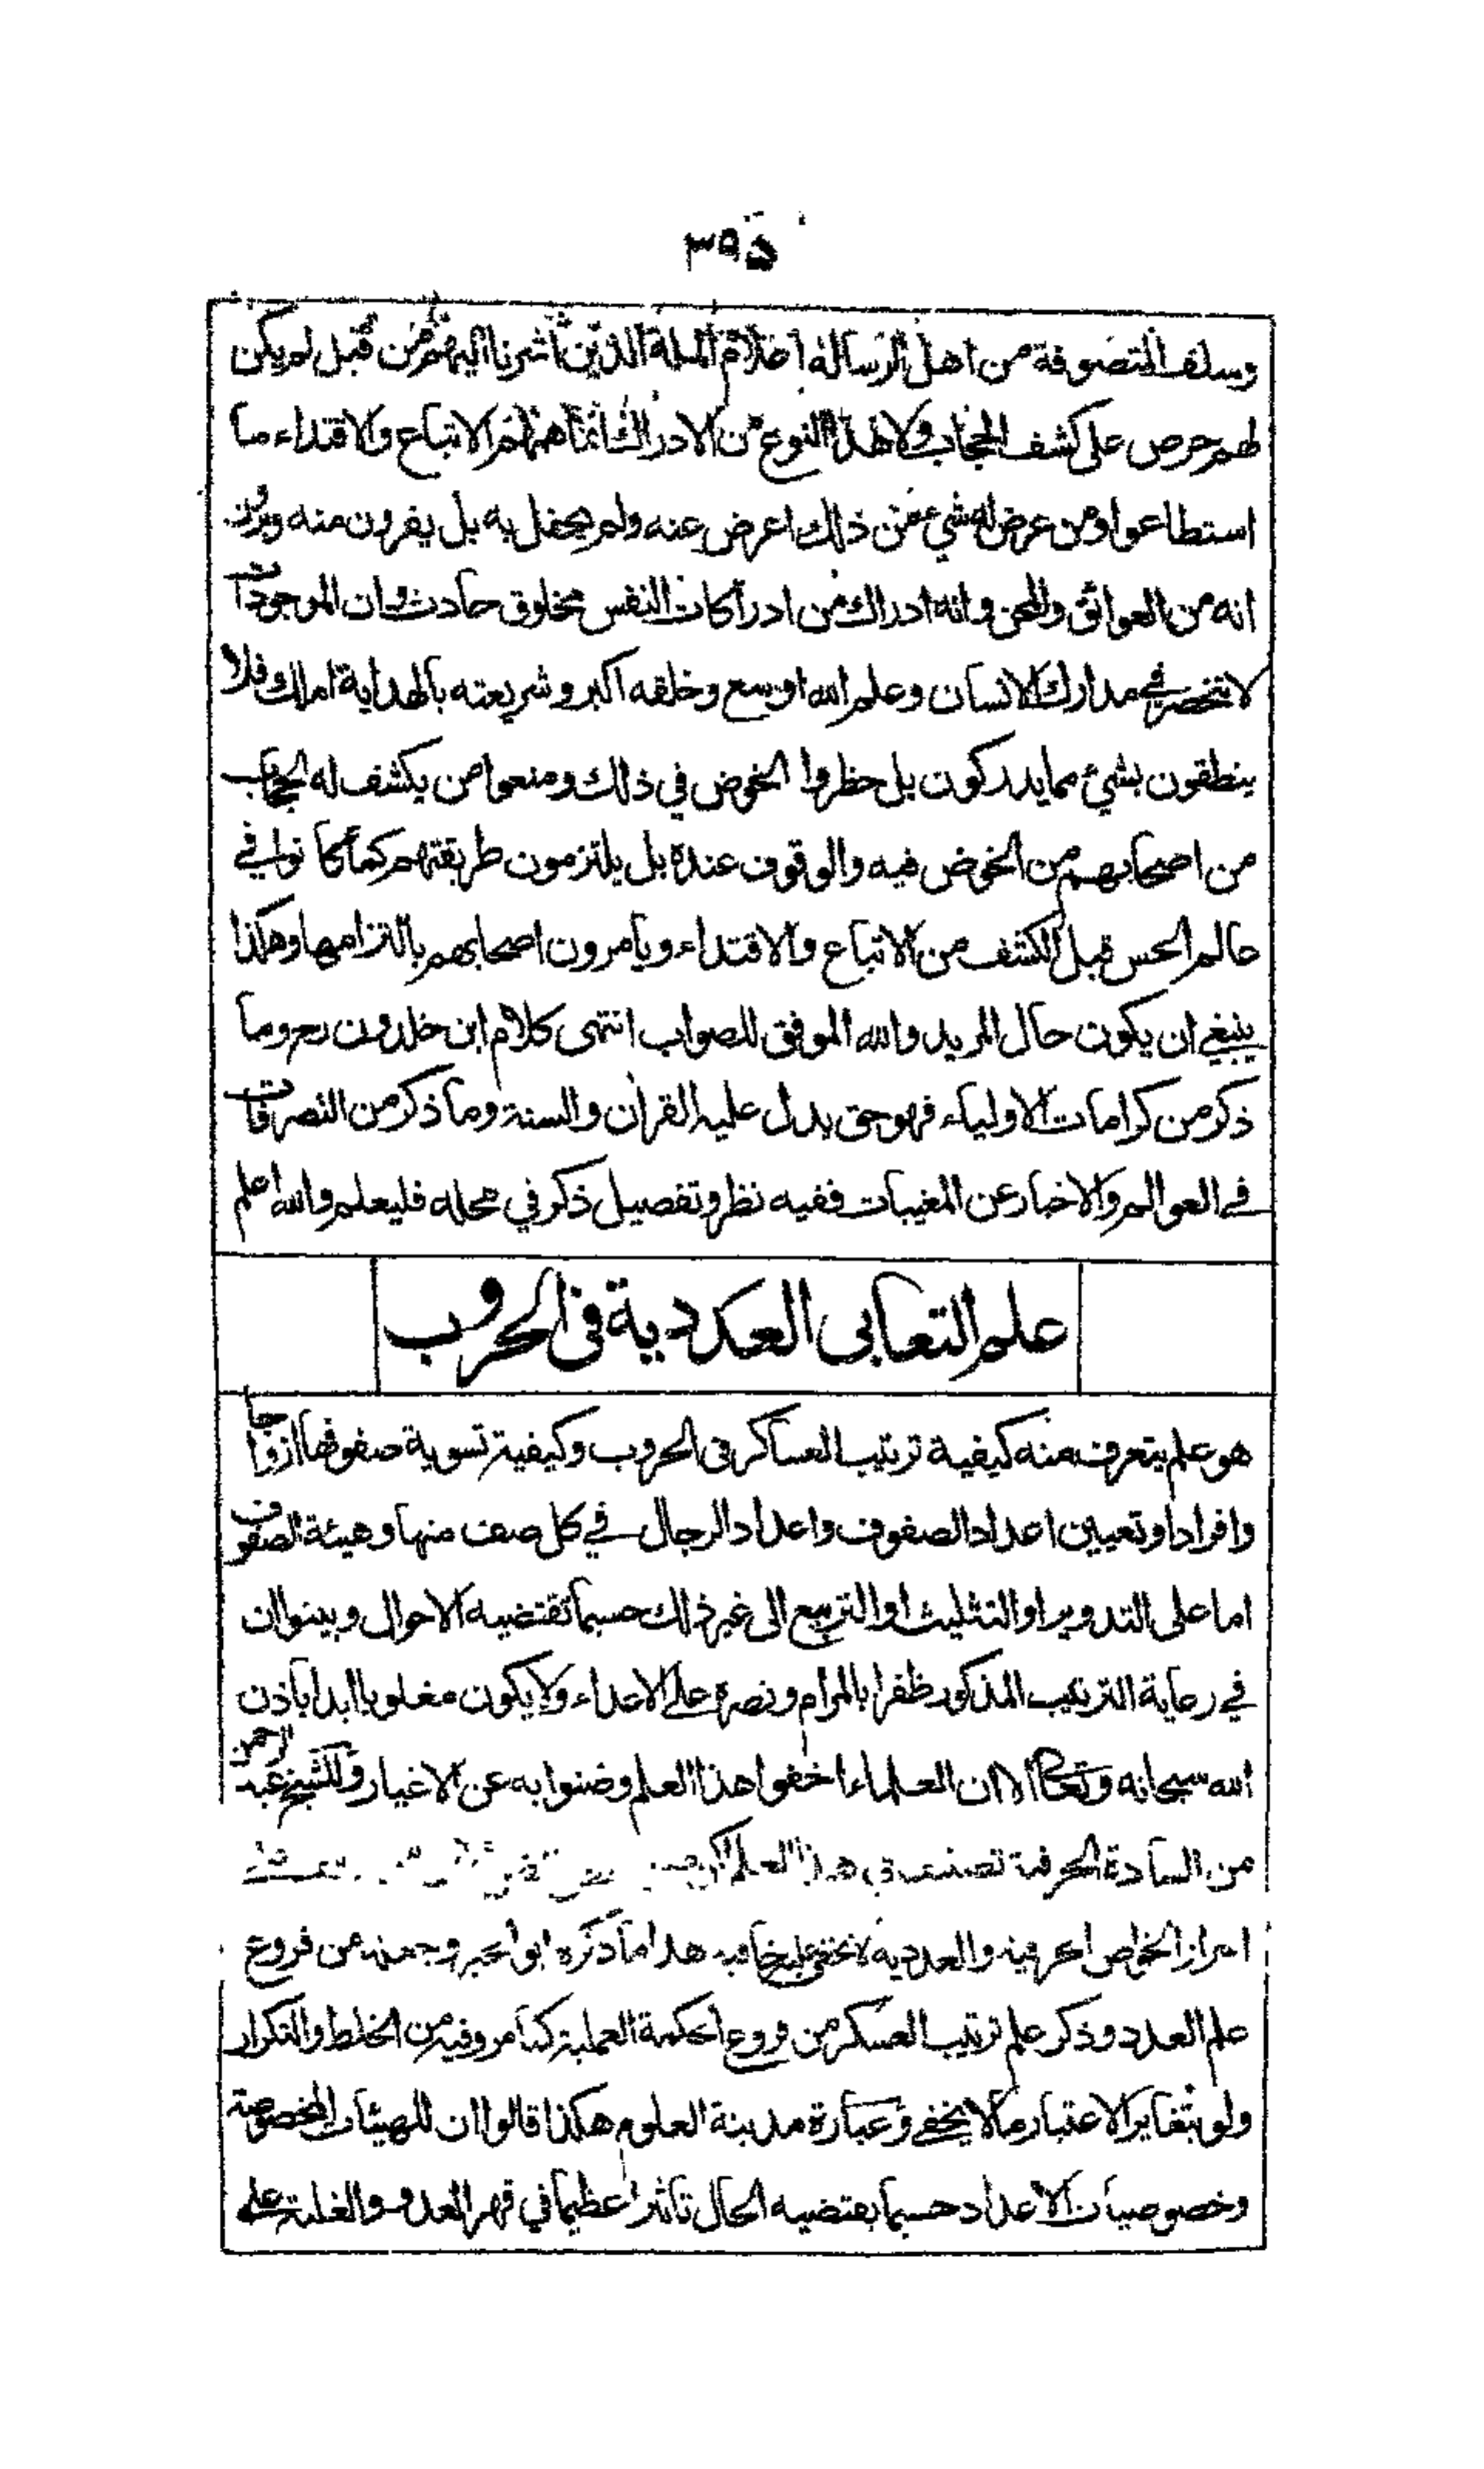 ٣٩٥
وسلف المتصوفة من اهل الرسالة اعلام الملة الذين اشرنا اليهم من قبل لم يكن
لهم حرص على كشف الحجاب ولا لهذا النوع من الادراك انما همهم الاتباع والاقتداء ما
استطاعوا ومن عرض له شيء من ذلك اعرض عنه ولم يحفل به بل يفرون منه ويرون
انه من العوائق والمحن وانه ادراك من ادراكات النفس مخلوق حادث وان الموجودات
لا تنحصر في مدارك الانسان وعلم الله اوسع وخلقه اكبر وشريعته بالهداية املك فلا
ينطقون بشئ مما يدركون بل حظروا الخوض في ذلك ومنعوا من يكشف له الحجاب
من اصحابهم من الخوض فيه والوقوف عنده بل يلتزمون طريقتهم كما كانوا في
عالم الحس قبل الكشف من الاتباع والاقتداء ويأمرون اصحابهم بالتزامها وهكذا
ينبغي ان يكون حال المريد والله الموفق للصواب انتهى كلام ابن خلدون رح وما
ذكر من كرامات الاولياء فهو حق يدل عليه القرأن والسنة وما ذكر من التصرفات
في العوالم والاخبار عن المغيبات ففيه نظر وتفصيل ذكر في محله فليعلم والله اعلم
علم التعابى العددية فى الحروب
هو علم يتعرف منه كيفية ترتيب العساكر فى الحروب وكيفية تسوية صفوفها ازواجا
وافرادا وتعيين اعداد الصفوف واعداد الرجال في كل صف منها وهيئة الصفوف
اما على التدوير او التثليث او التربيع الى غير ذلك حسبما تقتضيه الاحوال وبينوا ان
في رعاية الترتيب المذكور ظفرا بالمرام ونصرة على الاعداء ولا يكون مغلوبا ابدا باذن
الله سبحانه وتعالى الا ان العلماء اخفوا هذا العلم وضنوا به عن الاغيار وللشيخ عبد الرحمن
من السادة الحرفية تصنيف في هذا العلم لكن
احراز الخواص الحرفية والعددية لا تخفى عليه خافية هذا ما ذكره ابو الخير وجعله من فروع
علم العدد وذكر علم ترتيب العسكر من فروع الحكمة العملية كما مر وفيه من الخلط والتكرار
ولو بتغاير الاعتبار ما لا يخفى وعبارة مدينة العلوم هكذا قالوا ان للهيئات المخصوصة
وخصوصيات الاعداد حسبما يقتضيه الحال تأثيرا عظيما في قهر العدو والغلبة على